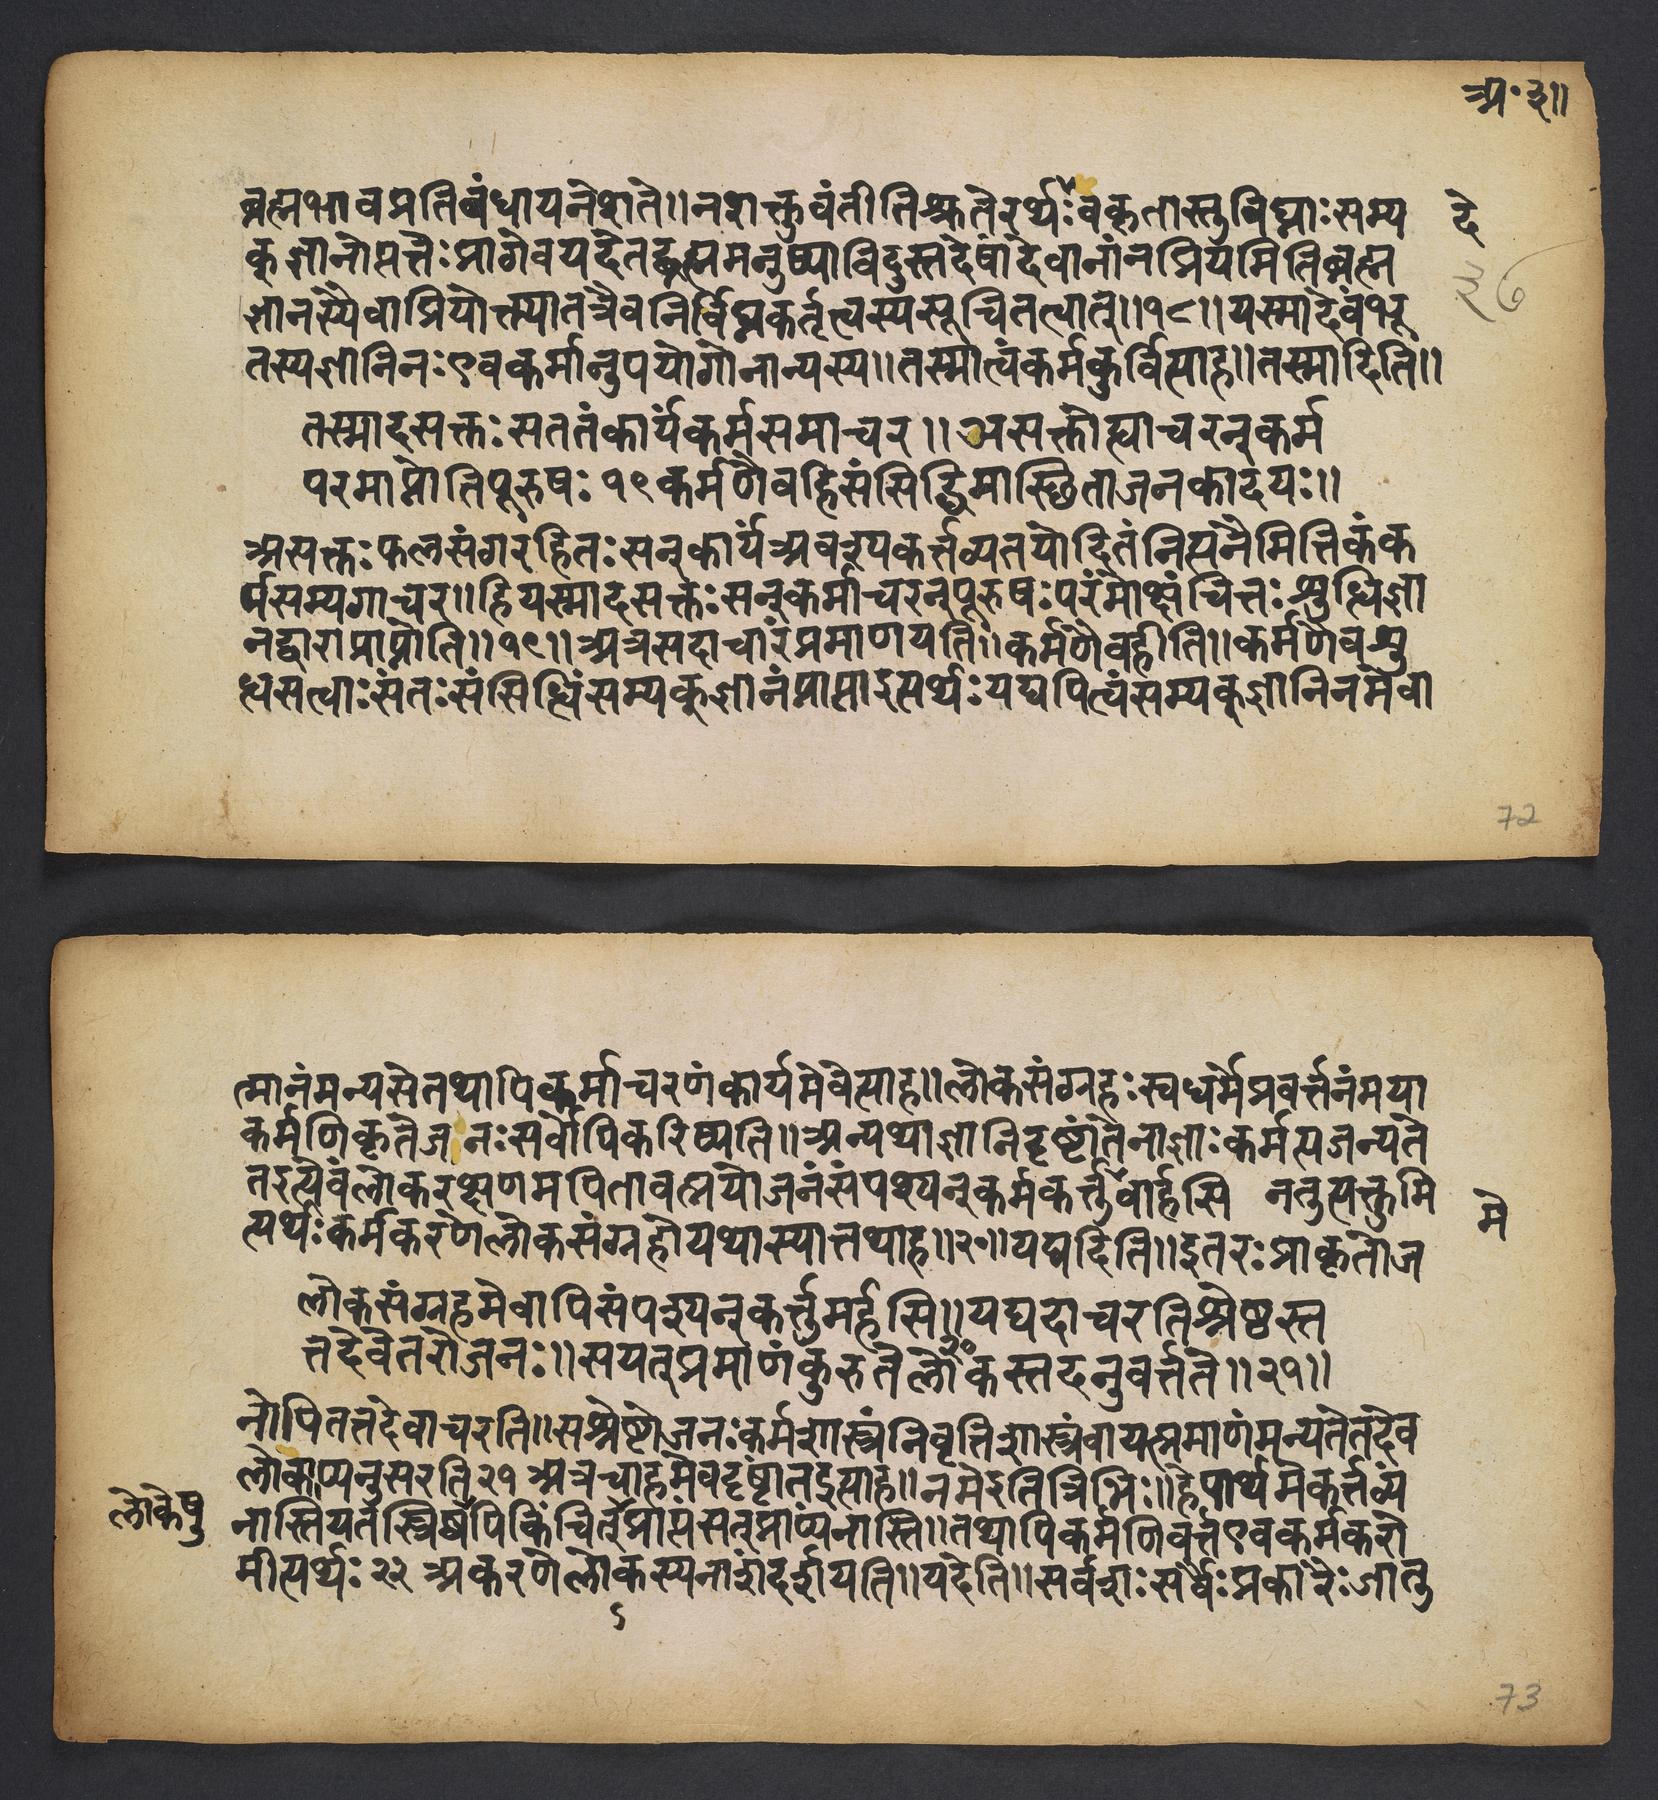 अ॰ ३॥
ब्रह्मभावप्रतिबंधायनेशते॥नशक्नुवंतीतिश्रुतेरर्थः वकृतास्तुविघ्नाःसम्य
दे
क्ज्ञानोत्पत्तेःप्रागेवयदेतद्ब्रह्ममनुष्याविदुस्तदेषांदेवानांनप्रियमितिब्रह्म
३७
ज्ञानस्यैवाप्रियोक्त्यातत्रैवनिर्विघ्नकर्तृत्वस्यसूचितत्वात्॥१८॥यस्मादेवंभू
तस्यज्ञानिनःएवकर्मानुपयोगोनान्यस्य॥तस्मात्त्वंकर्मकुर्वित्याह॥तस्मादिति॥
तस्मादसक्तःसततंकार्यंकर्मसमाचर॥असक्तोह्याचरन्कर्म
परमाप्नोतिपूरुषः१९कर्मणैवहिसंसिद्धिमास्छिताजनकादयः॥
असक्तःफलसंगरहितःसन्कार्यंअवश्यकर्त्तव्यतयोदितंनित्यंनैमित्तिकंक
र्मसम्यगाचर॥हियस्मादसक्तःसन्कर्माचरन्पूरुषःपरंमोक्षंचित्तःशुध्यिज्ञा
नद्वाराप्राप्नोति॥१९॥अत्रसदाचारंप्रमाणयति॥कर्मणैवहीति॥कर्मणैवशु
ध्यसत्वाःसंतःसंसिध्यिंसम्यक्ज्ञानंप्राप्ताइत्यर्थःयद्यपित्वंसम्यक्ज्ञानिनमेवा
72
त्मानंमन्यसेतथापिकर्माचरणंकार्यमेवेत्याह॥लोकसंग्रहःस्वधर्मेप्रवर्त्तनंमया
कर्मणिकृतेज नःसर्वोपिकरिष्यति॥अन्यथाज्ञानिदृष्टांतेनाज्ञाःकर्मत्यजन्यते
तइत्येवंलोकरक्षणमपितावत्प्रयोजनंसंपश्यन्कर्मकर्त्तुवार्हसि नतुत्यक्तुमि
मे
त्यर्थःकर्मकरणेलोकसंग्रहोयथास्यात्तथाह॥२०॥यद्यदिति॥इतरःप्राकृतोज
लोकसंग्रहमेवापिसंपश्यन्कर्त्तुमर्हसि॥यद्यदाचरतिश्रेष्ठस्त
२०
त्तदेवेतरोजनः॥सयत्प्रमाणंकुरुतेलोकस्तदनुवर्त्तते॥२१॥
नोपितत्तदेवाचरति॥सश्रेष्टोजनःकर्मशास्त्रंनिवृत्तिशास्त्रंवायत्प्रमाणंमन्यतेतदेव
लोकाप्यनुसरति२१ अत्रचाहमेवदृष्टांतइत्याह॥नमेइतित्रिभिः॥हेपार्थमेकर्त्तव्यं
लोकेषु
नास्तियतस्त्रिष्वपिकिंचित्प्राप्तंसत्प्राप्यंनास्ति॥तथापिकर्मणिवर्त्तएवकर्मकरो
मीत्यर्थः२२ अकरणेलोकस्यनाशंदर्शयति॥यदेति॥सर्वशःसर्वैःप्रकारैःजातु
73